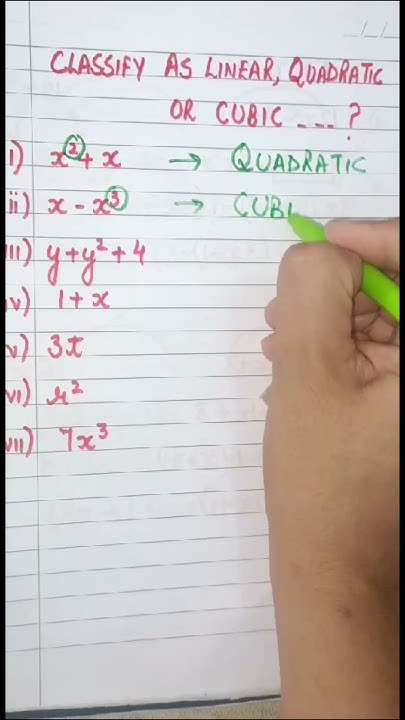 CLASSIFY AS LINEAR, QUADRATIC
OR CUBIC --- ?
i) x² + x → QUADRATIC
ii) x - x³ → CUBI
iii) y + y² + 4
iv) 1 + x
v) 3t
vi) r²
vii) 7x³